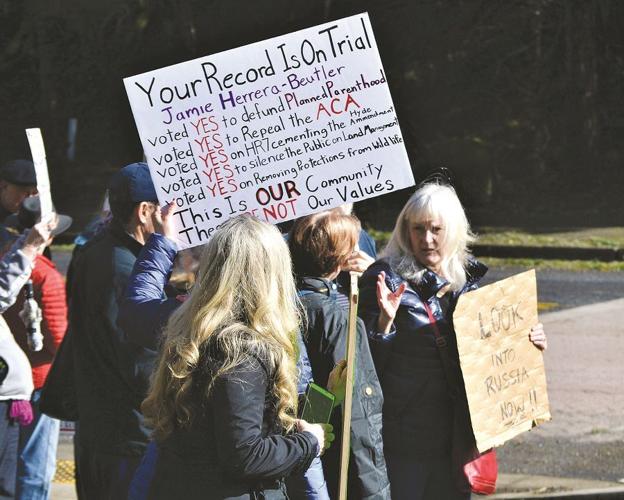 Your Record Is On Trial
Jamie Herrera-Beutler
voted YES to defund Planned Parenthood
voted YES to Repeal the ACA
voted YES on HR7 cementing the Hyde Ammendment
voted YES to silence the Public on Land Management
voted YES on Removing Protections from Wildlife
This Is OUR Community
These ARE NOT Our Values
LOOK
INTO
RUSSIA
NOW!!